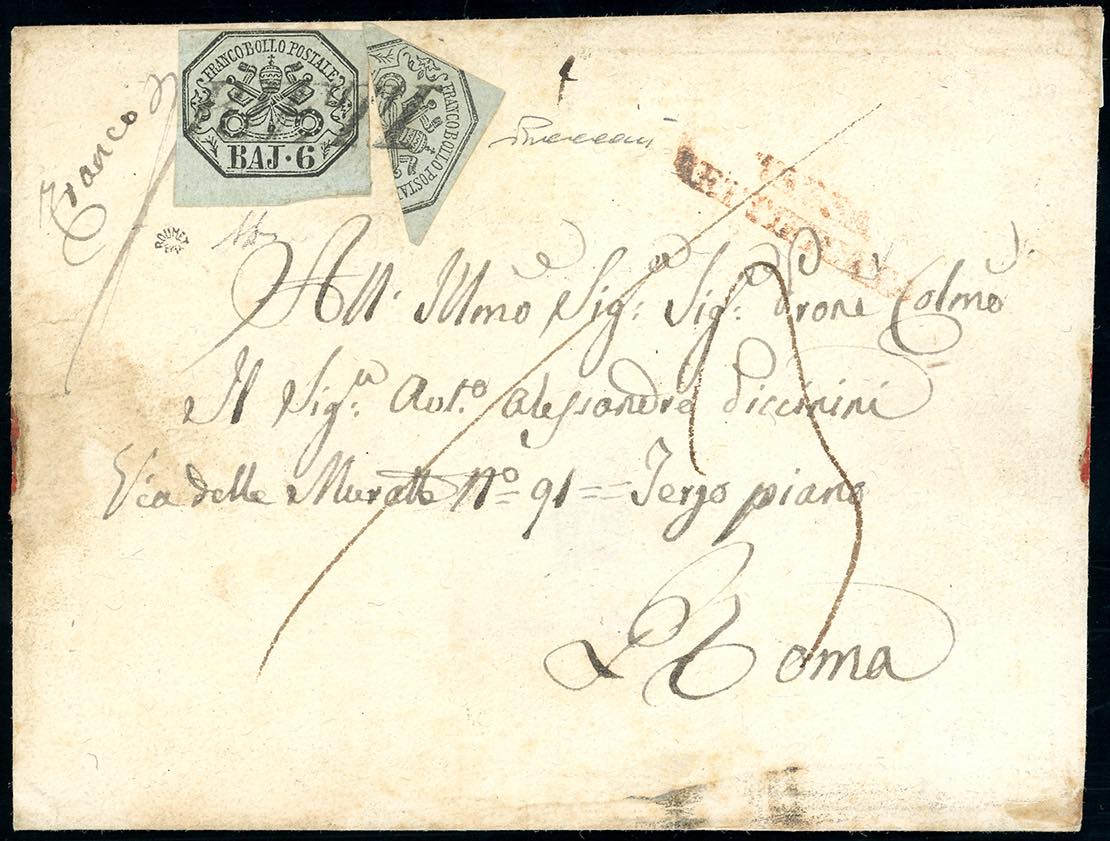 FRANCO BOLLO POSTALE
BAJ·6
FRANCO BOLLO POSTA
Franco
ROUMET
All' Illmo Sig: Sig: Prone Colmo
Il Sig.a Avt.o Alessandro Piccinini
Via delle Muratte No 91 = Terzo piano
Roma